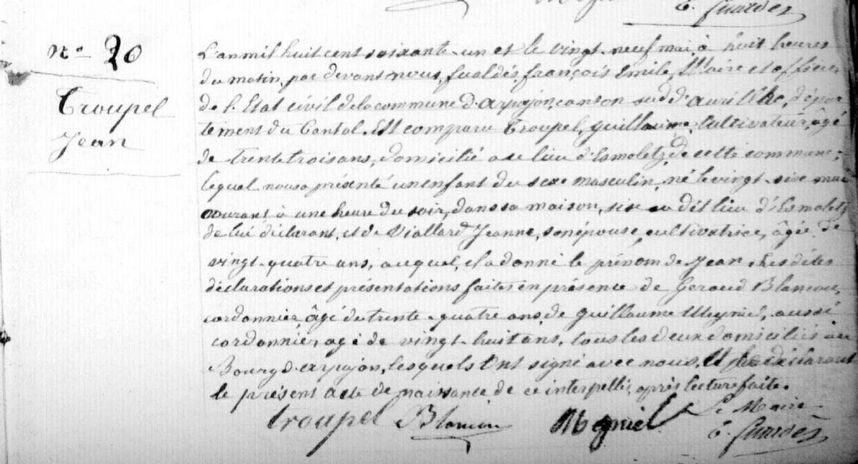 N° 20
Troupel
Jean
L'an mil huit cent soixante un et le vingt-neuf mai, à huit heures
du matin, par devant nous, fualdès, françois Emile, Maire et officier
de l'Etat civil de la commune d'arpajon, canton sud d'aurillac, dépar
tement du Cantal. Est comparu Troupel, guillaume, cultivateur, agé
de trente trois ans, domicilié a ce lieu d'Esmolets de cette commune,
lequel nous a présenté un enfant du sexe masculin, né le vingt-six mai
courant à une heure du soir, dans sa maison, sise au dit lieu d'Esmolets
de lui déclarant, et de Viallard Jeanne, son épouse, cultivatrice, âgée de
vingt-quatre ans, auquel, il a donné le prénom de Jean. Les dites
déclarations et présentations faites en présence de Geraud Blancou,
cordonnier âgé de trente-quatre ans, de guillaume Meyniel, aussi
cordonnier, agé de vingt-huit ans, tous les deux domiciliés au
Bourg d'arpajon, lesquels Ont signé avec nous, et déclarant
le présent acte de naissance de ce interpellé, après lecture faite.
troupel Blancou Meyniel Le Maire
E. fualdès